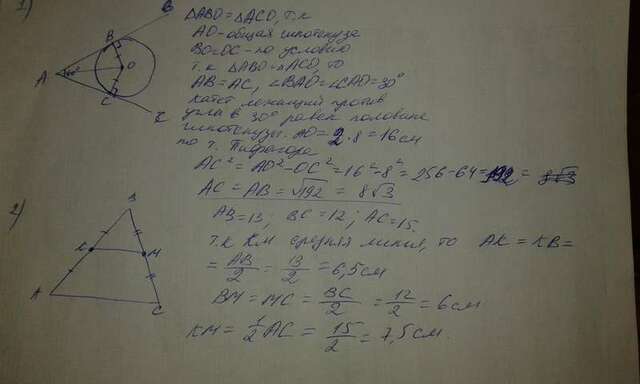 1)
B
B
A
60°
O
C
C
ΔABO = ΔACO, т.к
AO - общая гипотенуза
BO=OC - по условию
т.к ΔABO=ΔACO, то
AB = AC, ∠BAO=∠CAO=30°
Катет лежащий против
угла в 30° равен половине
гипотенузы. AO = 2·8=16см
по т. Пифагора
AC² = AO² - OC² = 16² - 8² = 256-64=192 =
AC = AB = √192 = 8√3
2)
B
K
M
A
C
AB=13; BC=12; AC=15.
т.к KM средняя линия, то AK = KB =
= AB/2 = 13/2 = 6,5см
BM = MC = BC/2 = 12/2 = 6см
KM = 1/2 AC = 15/2 = 7,5см.